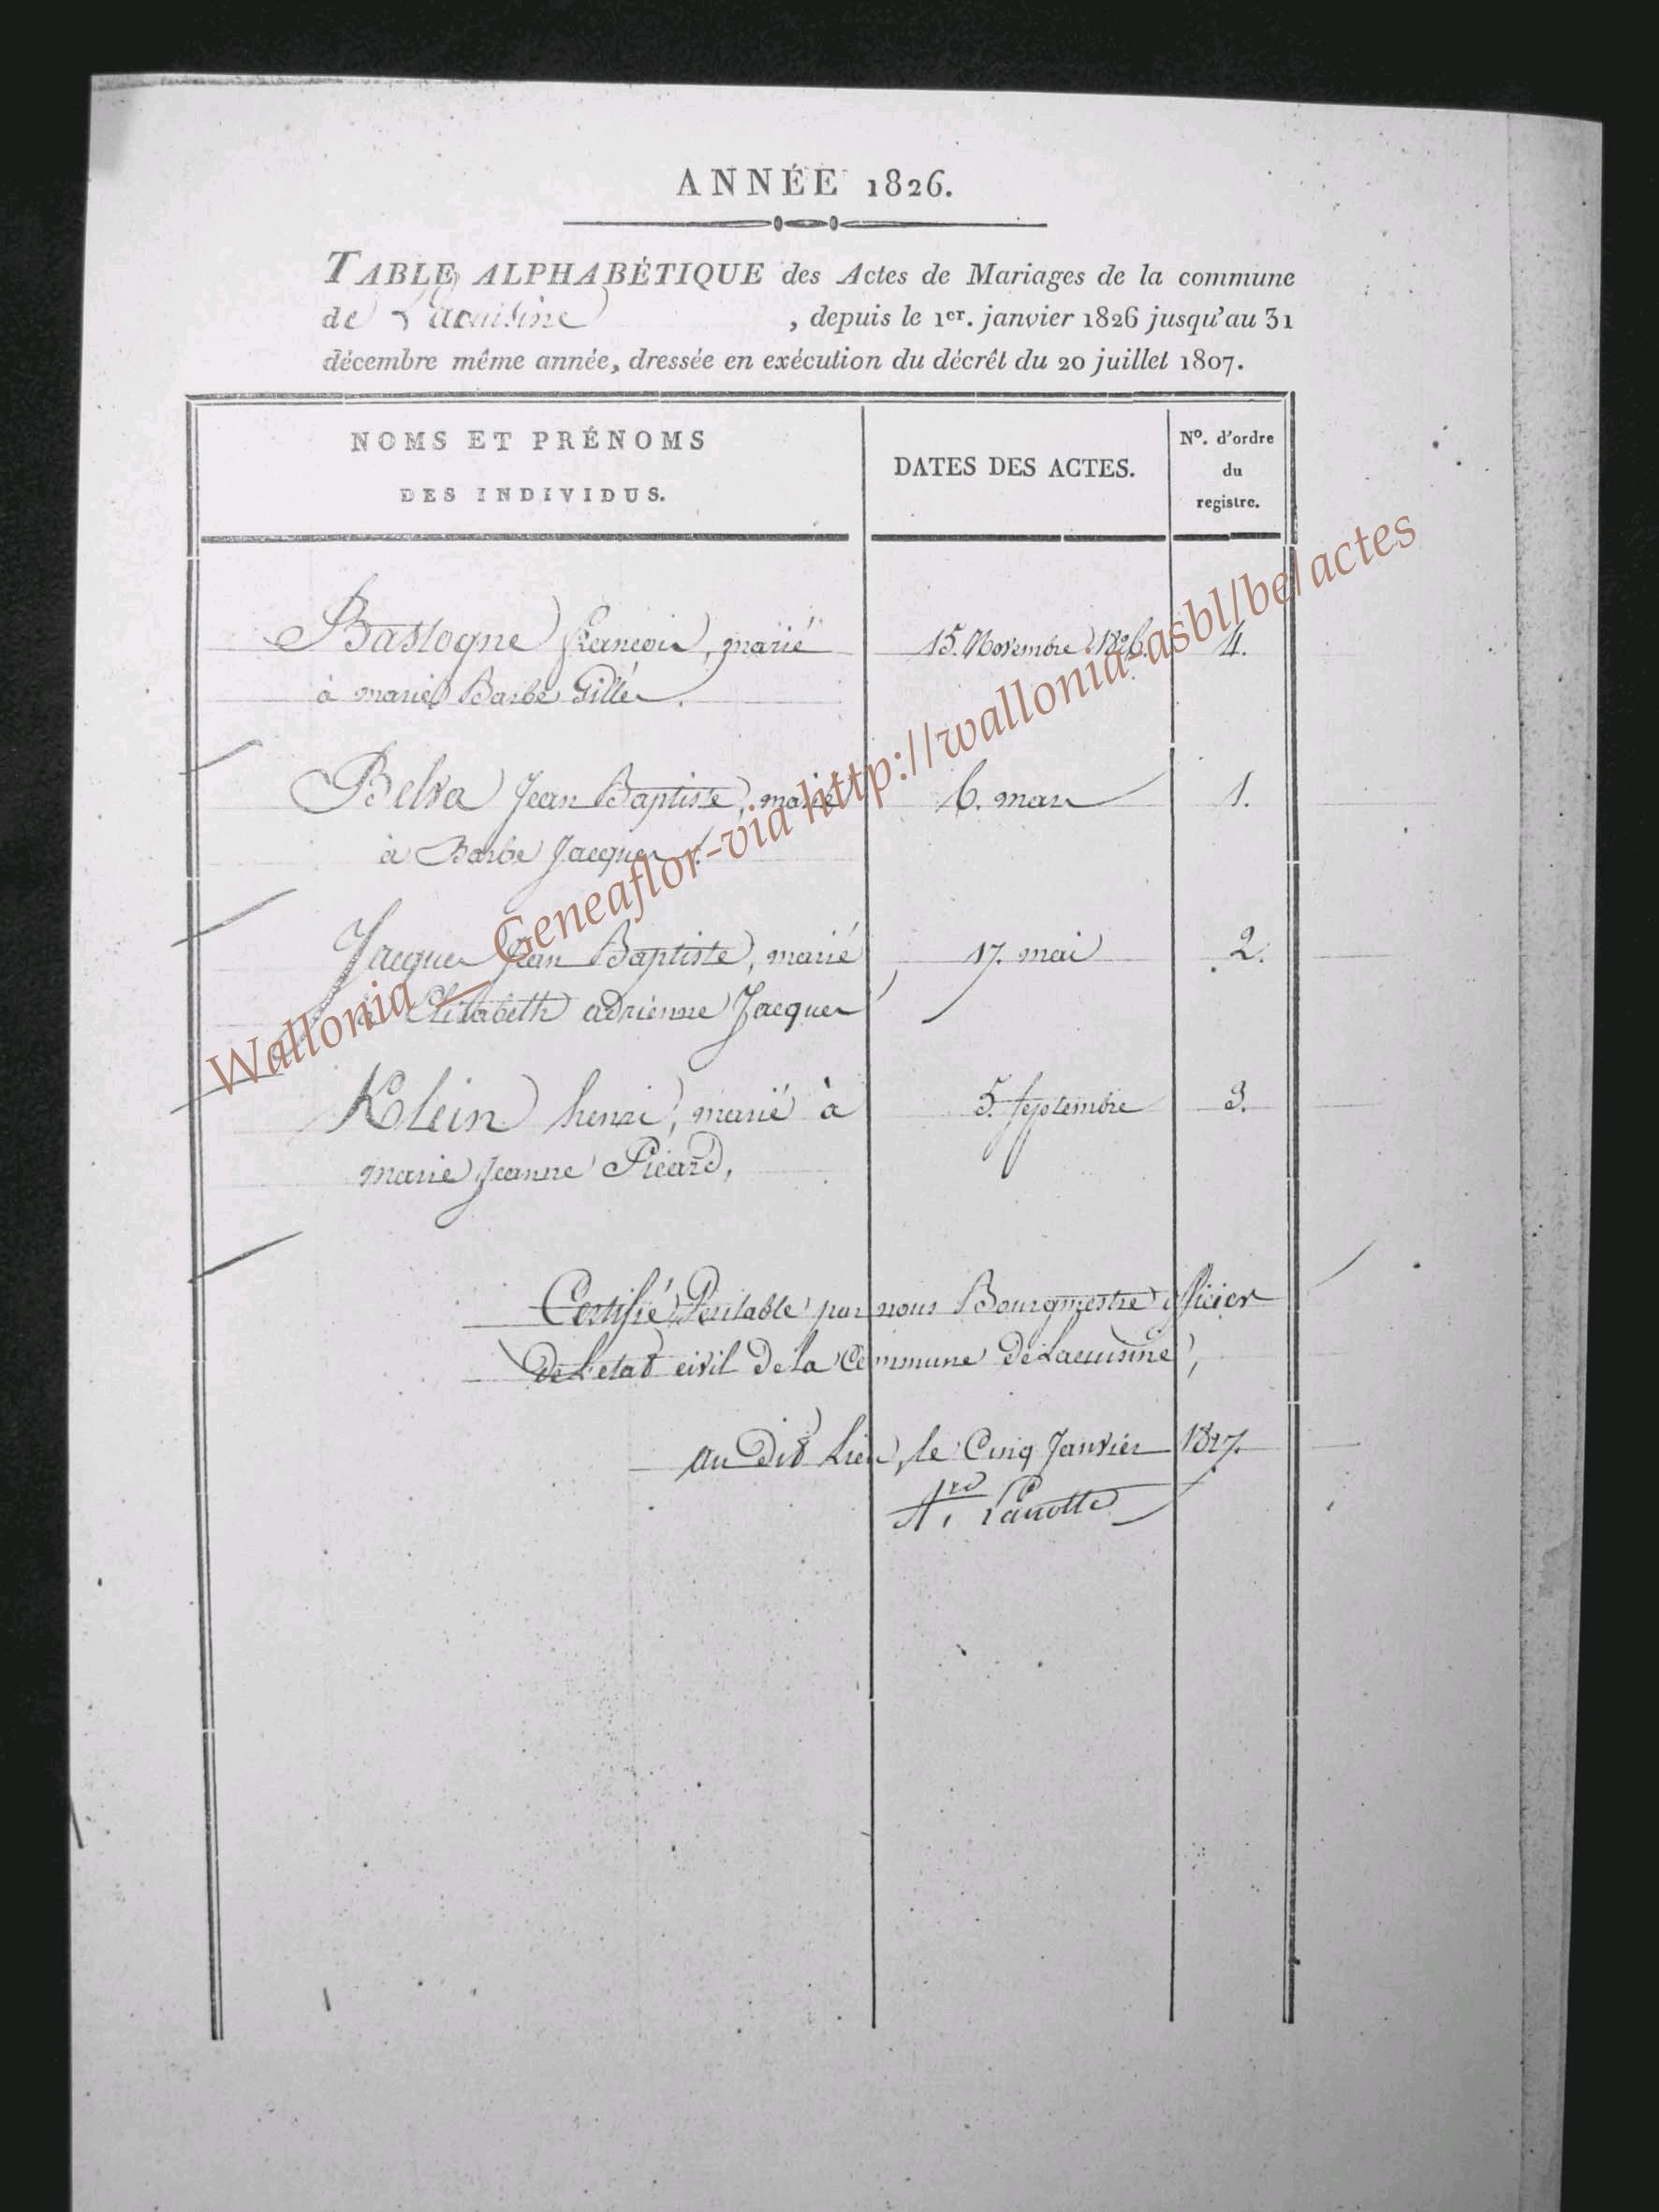 ANNÉE 1826.
TABLE ALPHABÉTIQUE des Actes de Mariages de la commune
de Lacuisine, depuis le 1er. janvier 1826 jusqu'au 31
décembre même année, dressée en exécution du décrêt du 20 juillet 1807.
NOMS ET PRÉNOMS
DES INDIVIDUS.
DATES DES ACTES.
No. d'ordre
du
registre.
Bastogne françois, marié 15. Novembre 1826. 4.
à marie Barbe Gilles.
Belva Jean Baptiste, marié 6. mars 1.
à Barbe Jacques.
Jacques Jean Baptiste, marié 17. mai 2.
à Elisabeth adrienne Jacques
Klein henri, marié à 5. septembre 3.
marie Jeanne Picard,
Certifié Véritable par nous Bourgmestre officier
De L'etat civil De la Commune De Lacuisine,
au Dit Lieu, le Cinq Janvier 1827.
Wallonia _ Geneaflor-via http://wallonia-asbl/be/actes